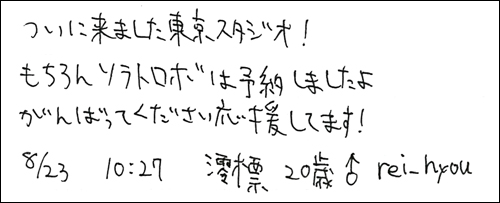 ついに来ました東京スタジオ!
もちろんソラトロボは予約しましたよ
がんばってください応援してます!
8/23 10:27 澪標 20歳♂ rei_hyou